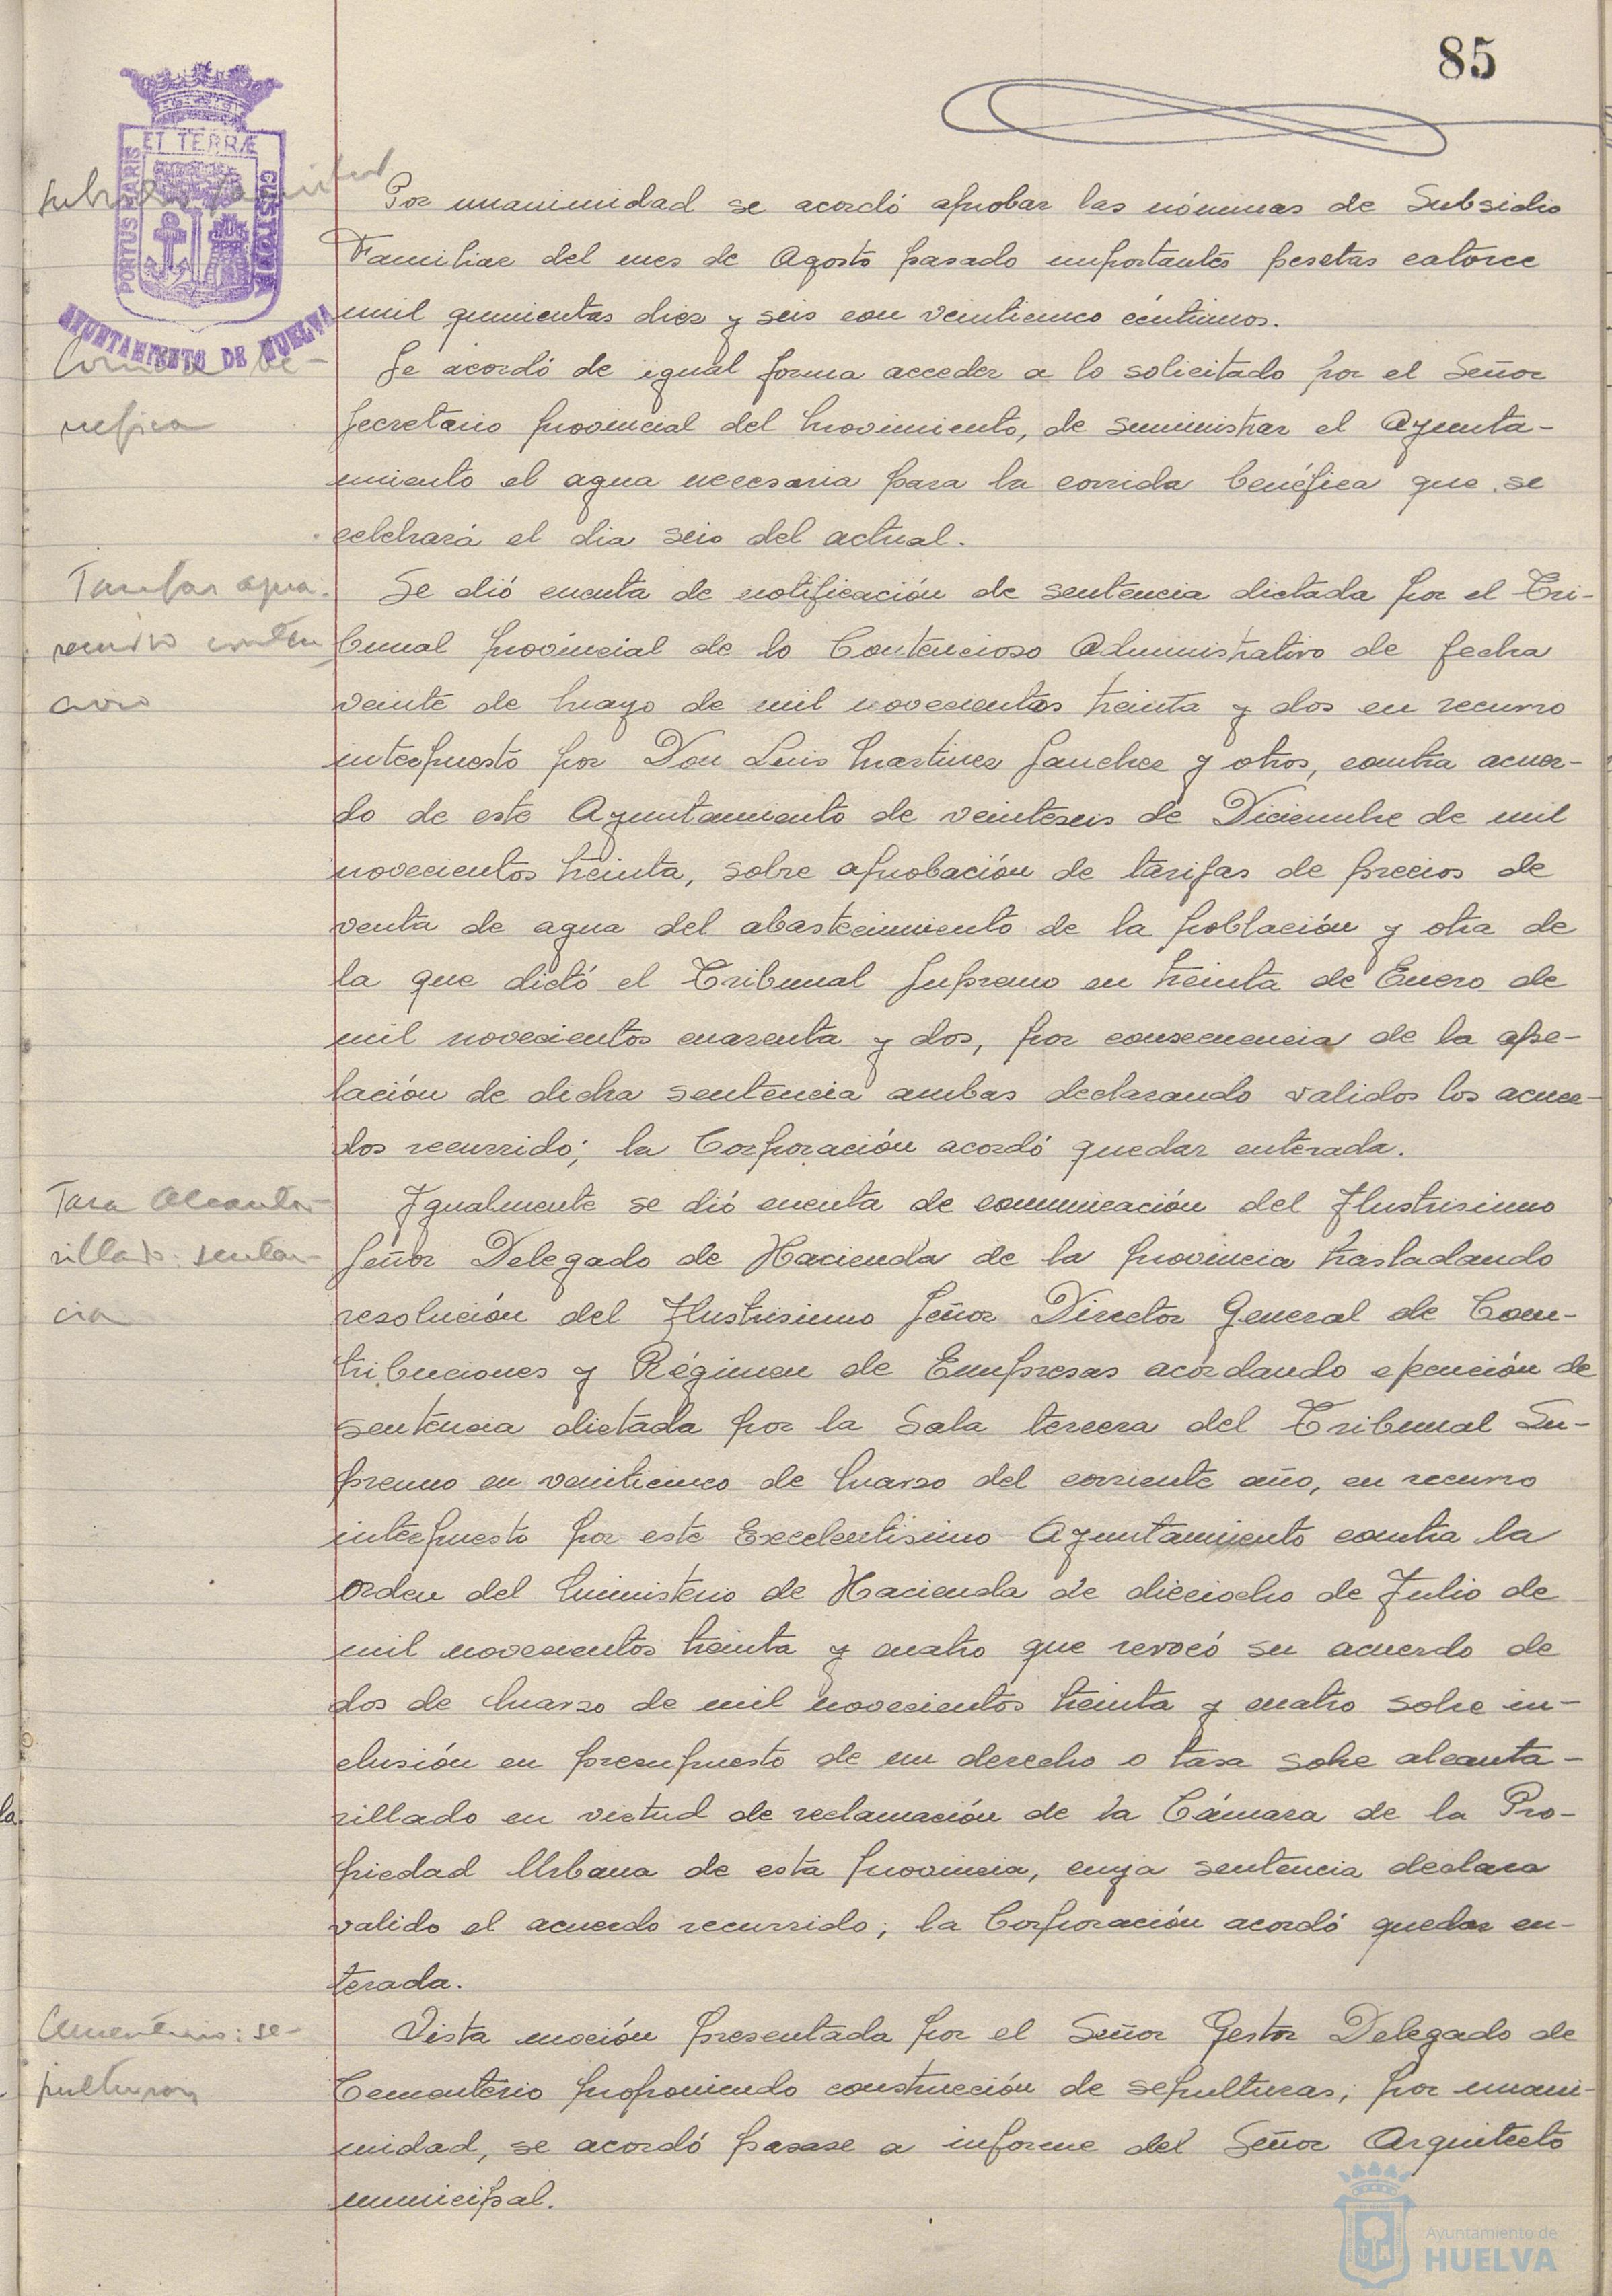 85
PORTUS MARIS ET TERRÆ CUSTODIA
AYUNTAMIENTO DE HUELVA
Subsidio Familiar
Por unanimidad se acordó aprobar las nóminas de Subsidio
Familiar del mes de Agosto pasado importantes pesetas catorce
mil quinientas diez y seis con veinticinco céntimos.
Corrida be-
néfica
Se acordó de igual forma acceder a lo solicitado por el Señor
Secretario provincial del Movimiento, de suministrar el Ayunta-
miento el agua necesaria para la corrida benéfica que se
celebrará el dia seis del actual.
Tarifas agua:
recurso conten
cioso
Se dió cuenta de notificación de sentencia dictada por el Tri-
bunal provincial de lo Contencioso Administrativo de fecha
veinte de Mayo de mil novecientos treinta y dos en recurso
interpuesto por Don Luis Martinez Sanchez y otros, contra acuer-
do de este Ayuntamiento de veinteseis de Diciembre de mil
novecientos treinta, sobre aprobación de tarifas de precios de
venta de agua del abastecimiento de la población y otra de
la que dictó el Tribunal Supremo en treinta de Enero de
mil novecientos cuarenta y dos, por consecuencia de la ape-
lación de dicha sentencia ambas declarando validos los acuer-
dos recurrido; la Corporación acordó quedar enterada.
Tasa Alcanta-
rillado: senten-
cia
Igualmente se dió cuenta de comunicación del Ilustrisimo
Señor Delegado de Hacienda de la provincia trasladando
resolución del Ilustrisimo Señor Director General de Con-
tribuciones y Régimen de Empresas acordando ejecución de
sentencia dictada por la Sala tercera del Tribunal Su-
premo en veinticinco de Marzo del corriente año, en recurso
interpuesto por este Excelentisimo Ayuntamiento contra la
orden del Ministerio de Hacienda de dieciocho de Julio de
mil novecientos treinta y cuatro que revocó su acuerdo de
dos de Marzo de mil novecientos treinta y cuatro sobre in-
clusión en presupuesto de un derecho o tasa sobre alcanta-
rillado en virtud de reclamación de la Cámara de la Pro-
piedad Urbana de esta provincia, cuya sentencia declara
valido el acuerdo recurrido; la Corporación acordó quedar en-
terada.
Cementerio: se-
pulturas
Vista moción presentada por el Señor Gestor Delegado de
Cementerio proponiendo construcción de sepulturas; por unani-
midad, se acordó pasase a informe del Señor Arquitecto
municipal.
Ayuntamiento de
HUELVA